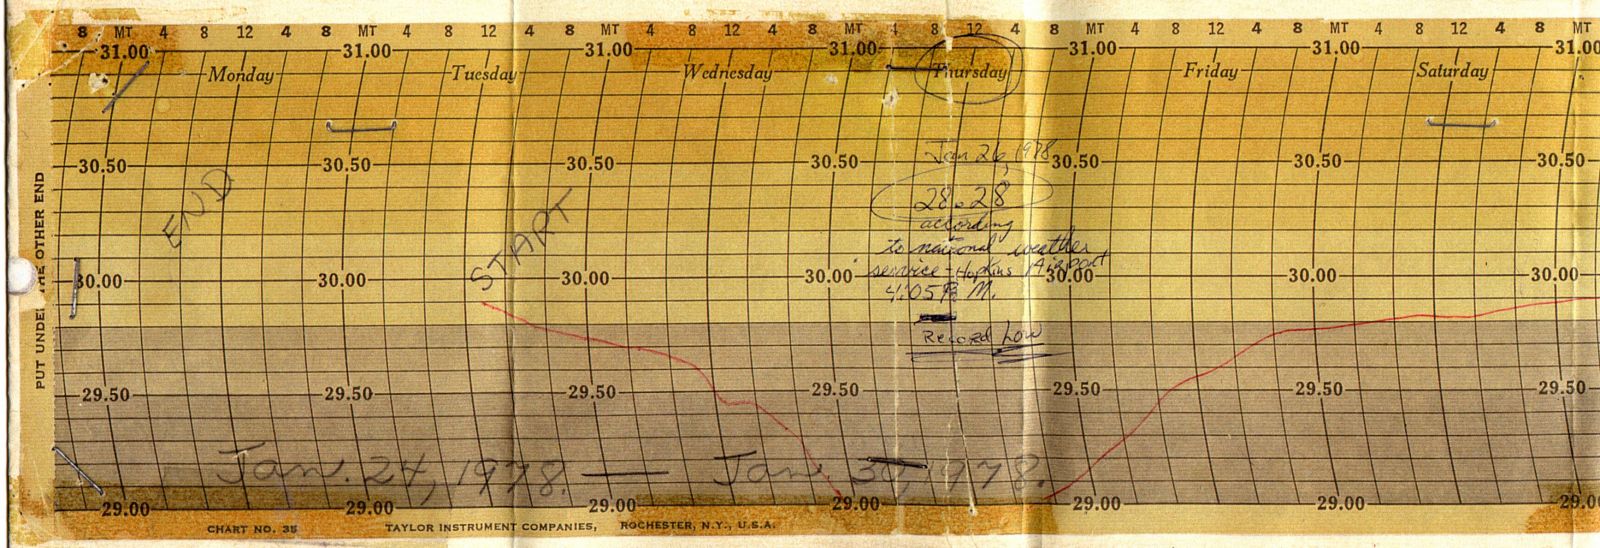 8 MT 4 8 12 4 8 MT 4 8 12 4 8 MT 4 8 12 4 8 MT 4 8 12 4 8 MT 4 8 12 4 8 MT 4 8 12 4 8 MT
31.00 31.00 31.00 31.00 31.00 31.00 31.00
Monday Tuesday Wednesday Thursday Friday Saturday
Jan 26, 1978
30.50 30.50 30.50 30.50 30.50 30.50 30.50
END
START
28.28
according
to national weather
service - Hopkins Airport
30.00 30.00 30.00 30.00 30.00 30.00 30.00
4:05 P.M.
Record Low
29.50 29.50 29.50 29.50 29.50 29.50 29.50
Jan. 24, 1978. — Jan 30, 1978.
29.00 29.00 29.00 29.00 29.00 29.00 29.0
CHART NO. 35 TAYLOR INSTRUMENT COMPANIES, ROCHESTER, N.Y., U.S.A.
PUT UNDER THE OTHER END